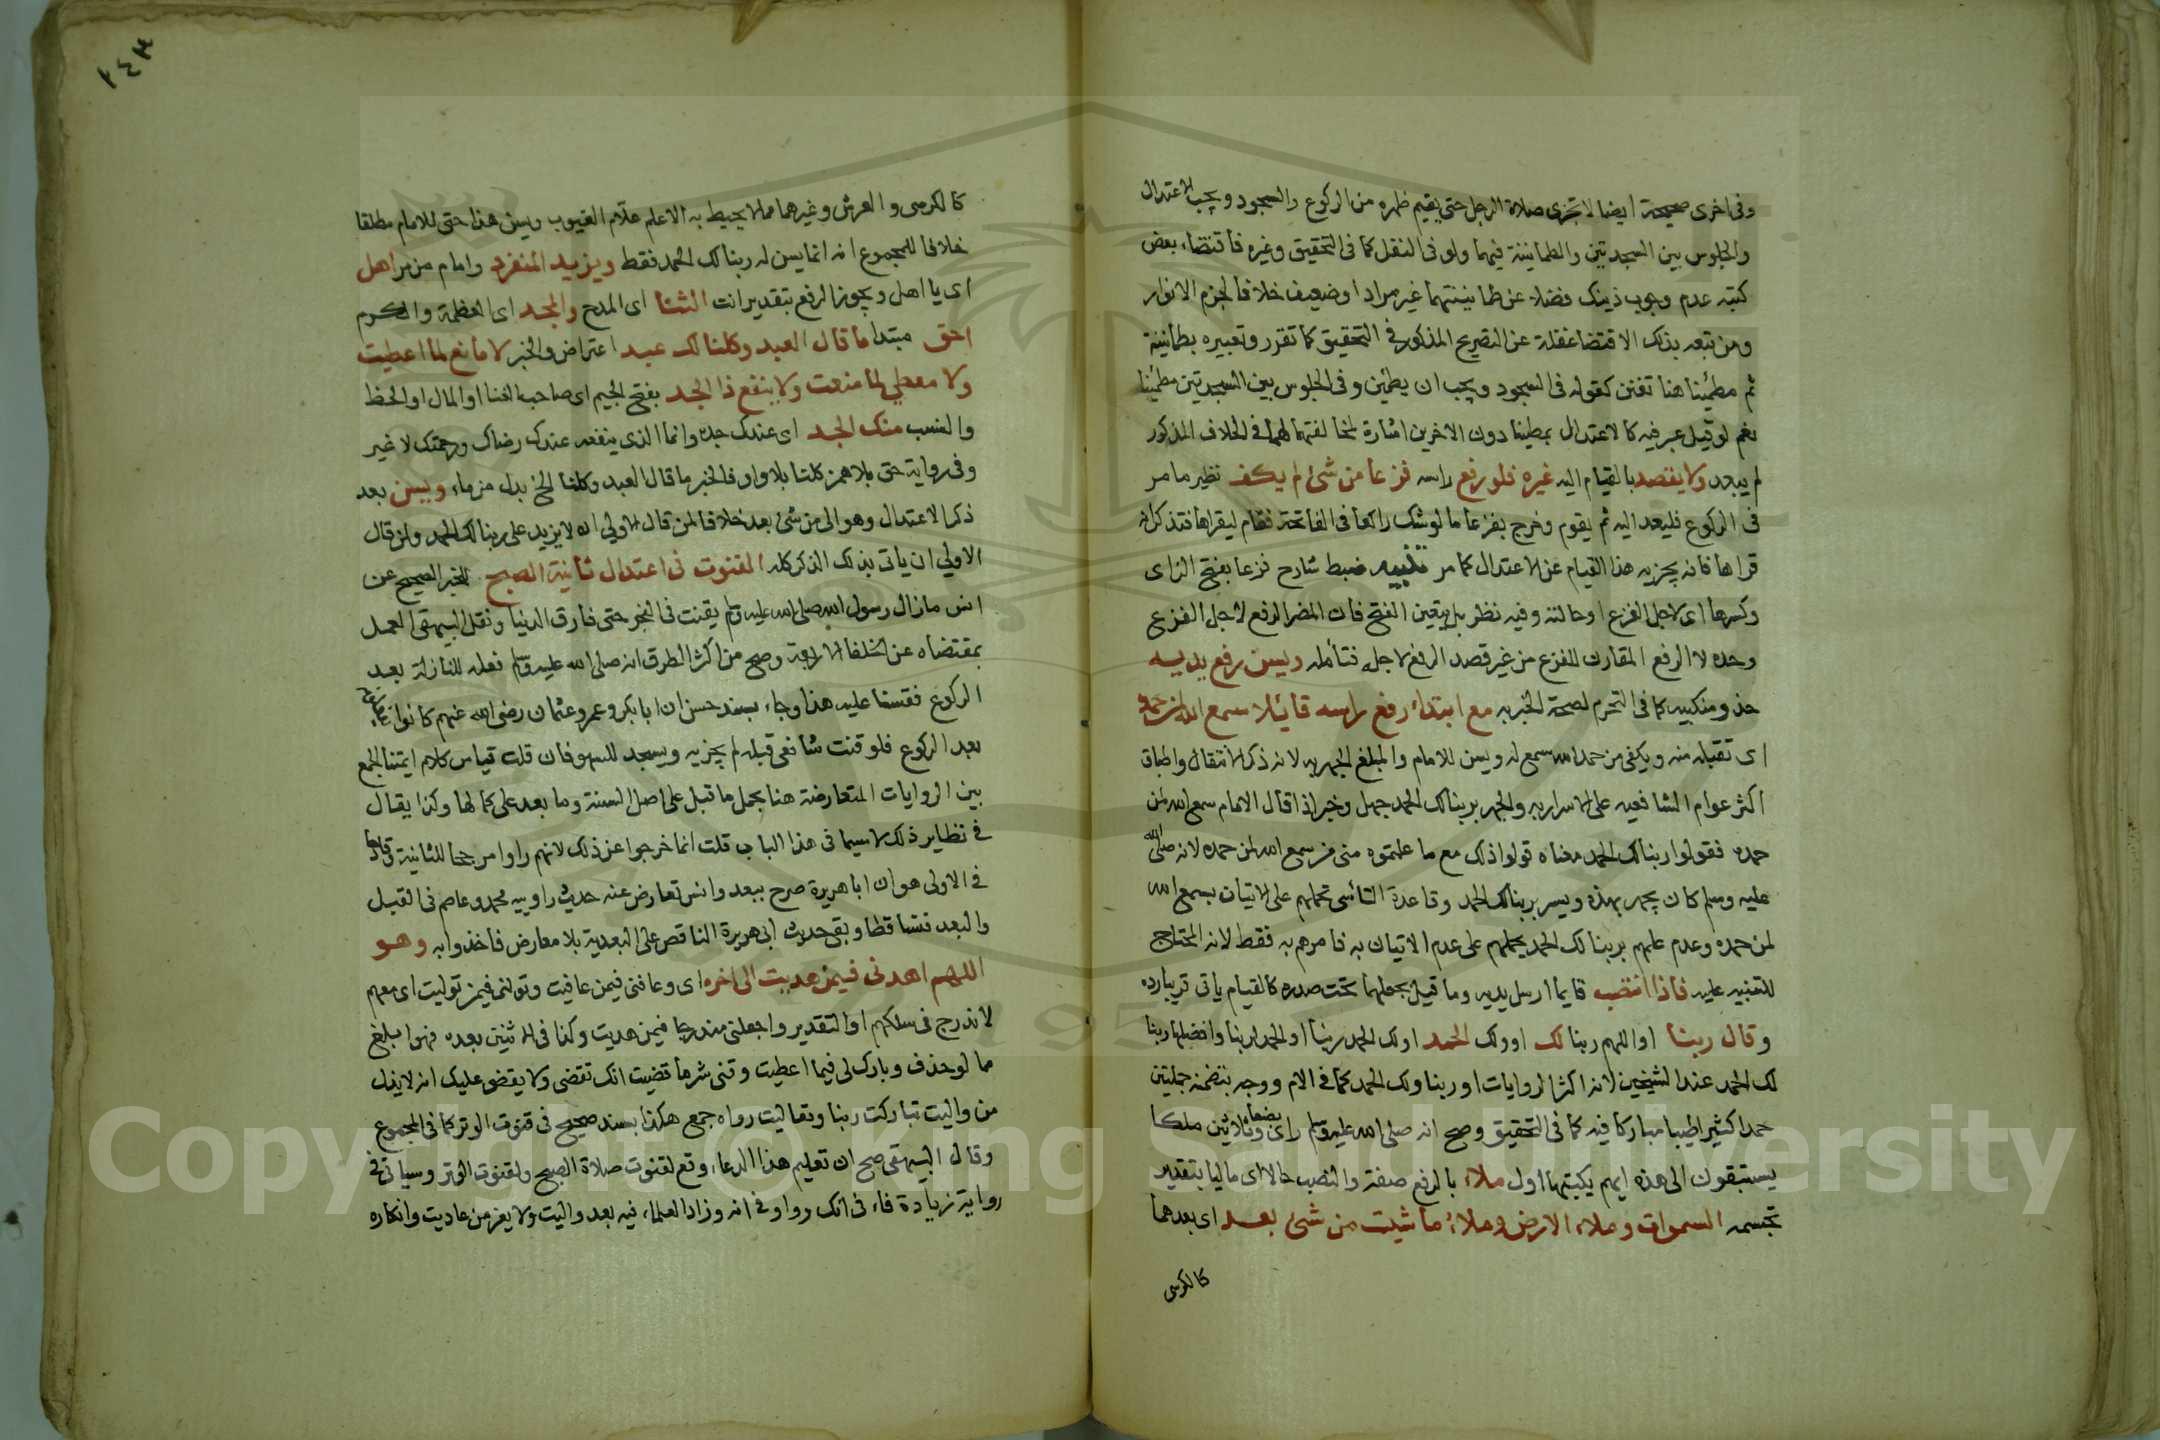 وفى اخرى صحيحة ايضا لا تجزى صلاة الرجل حتى يقيم ظهره من الركوع والسجود ويجب الاعتدال
والجلوس بين السجدتين والطمانينة فيهما ولو فى النفل كما فى التحقيق وغيره فاقتضاء بعض
كتبه عدم وجوب ذينك فضلا عن طمانينتهما غير مراد او ضعيف خلافا لجزم الانوار
ومن تبعه بذلك الاقتضا غفلة عن التصريح المذكور فى التحقيق كما تقرر وتعبيره بطمانينة
ثم مطمئنا هنا تفنن كقوله فى السجود ويجب ان يطمئن وفى الجلوس بين السجدتين مطمئنا
نعم لو قيل عبر فيه كالاعتدال بمطمينا دون الاخرين اشارة لمخالفتهما لهما فى الخلاف المذكور
لم يبعد ولا يقصد بالقيام اليه غيره فلو رفع راسه فزعا من شئ لم يكف نظير ما مر
فى الركوع فليعد اليه ثم يقوم وخرج بفزعا ما لو شك راكعا فى الفاتحة فقام ليقراها فتذكر انه
قراها فانه يجزيه هذا القيام عن الاعتدال كما مر تنبيه ضبط شارح فزعا بفتح الزاى
وكسرها اى لاجل الفزع او حالته وفيه نظر بل يتعين الفتح فان المضر الرفع لاجل الفزع
وحده لا الرفع المقارن للفزع من غير قصد الرفع لاجله فتأمله ويسن رفع يديه
حذو منكبيه كما فى التحرم لصحة الخبر به مع ابتداء رفع راسه قايلا سمع الله لمن حمده
اى تقبله منه ويكفى من حمد الله سمع له ويسن للامام والمبلغ الجهر به لانه ذكر الانتقال واطباق
اكثر عوام الشافعيه على الاسرار به والجهر بربنا لك الحمد جهل وخبر اذا قال الامام سمع الله لمن
حمده فقولوا ربنا لك الحمد معناه قولوا ذلك مع ما علمتموه منى من سمع الله لمن حمده لانه صلى الله
عليه وسلم كان يجهر بهذه ويسر بربنا لك الحمد وقاعدة التأسى تحملهم على الاتيان بسمع الله
لمن حمده وعدم علمهم بربنا لك الحمد يحملهم على عدم الاتيان به فامرهم به فقط لانه المحتاج
للتنبيه عليه فاذا انتصب قايما ارسل يديه وما قيل يجعلهما تحت صدره كالقيام ياتى قريبا رده
وقال ربنا او اللهم ربنا لك او ولك الحمد او لك الحمد ربنا او الحمد لربنا وافضلها ربنا
لك الحمد عند الشيخين لانه اكثر الروايات او ربنا ولك الحمد كما فى الام ووجه بتضمنه جملتين
حمدا كثيرا طيبا مباركا فيه كما فى التحقيق وصح انه صلى الله عليه وسلم راى بضعا وثلاثين ملكا
يستبقون الى هذه ايهم يكتبها اول ملاء بالرفع صفة والنصب حالا اى ماليا بتقدير
تجسمه السموات وملاء الارض وملاء ما شيت من شئ بعد اى بعدهما
كالكرسى
٢٤٣
كالكرسى والعرش وغيرهما مما لا يحيط به الا علم علّام الغيوب ويسن هذا حتى للامام مطلقا
خلافا للمجموع انه انما يسن له ربنا لك الحمد فقط ويزيد المنفرد وامام من مر اهل
اى يا اهل ويجوز الرفع بتقدير انت الثنا اى المدح والمجد اى العظمة والكرم
احق مبتدا ما قال العبد وكلنا لك عبد اعتراض والخبر لا مانع لما اعطيت
ولا معطي لما منعت ولا ينفع ذا الجد بفتح الجيم اى صاحب الغنا او المال او الحظ
والنسب منك الجد اى عندك جده وانما الذى ينفعه عندك رضاك ورحمتك لا غير
وفى رواية حق بلا همز كلنا بلا واو فالخبر ما قال العبد وكلنا الخ بدل من ماء ويسن بعد
ذكر الاعتدال وهو الى من شئ بعد خلافا لمن قال الاولي ان لا يزيد على ربنا لك الحمد ولمن قال
الاولي ان ياتى بذلك الذكر كله القنوت فى اعتدال ثانية الصبح للخبر الصحيح عن
انس مازال رسول الله صلى الله عليه وسلم يقنت فى الفجر حتى فارق الدنيا ونقل البيهقى العمل
بمقتضاه عن الخلفا الاربعة وصح من اكثر الطرق انه صلى الله عليه وسلم فعله للنازلة بعد
الركوع فقسنا عليه هذا وجاء بسند حسن ان ابا بكر وعمر وعثمان رضى الله عنهم كانوا يفعلونه
بعد الركوع فلو قنت شافعى قبله لم يجزيه ويسجد للسهو فان قلت قياس كلام ايمتنا الجمع
بين الروايات المتعارضة هنا بحمل ما قبل على اصل السنة وما بعد على كمالها وكذا يقال
فى نظاير ذلك لا سيما فى هذا الباب قلت انما خرجوا عن ذلك لانهم راوا مرجحا للثانية وقادحا
فى الاولى هو ان ابا هريرة صرح ببعد وانس تعارض عنه حديث راوييه محمد وعاصم فى القبل
والبعد فتساقطا وبقى حديث ابى هريرة الناقص على البعدية بلا معارض فاخذوا به وهو
اللهم اهدنى فيمن هديت الى اخره اى وعافنى فيمن عافيت وتولنى فيمن توليت اى معهم
لاندرج فى سلكهم او التقدير واجعلنى مندرجا فيمن هديت وكذا فى الاثنين بعده فهو ابلغ
مما لو حذف وبارك لى فيما اعطيت وقنى شر ما قضيت انك تقضى ولا يقضى عليك انه لا يذل
من واليت تباركت ربنا وتعاليت رواه جمع هكذا بسند صحيح فى قنوت الوتر كما فى المجموع
وقال البيهقى صح ان تعليم هذا الدعاء وقع لقنوت صلاة الصبح ولقنوت الوتر وسياتى فى
رواية زيادة فاء فى انك وواو فى انه وزاد العلماء فيه بعد واليت ولا يعز من عاديت وانكاره
Copyright © King Saud University